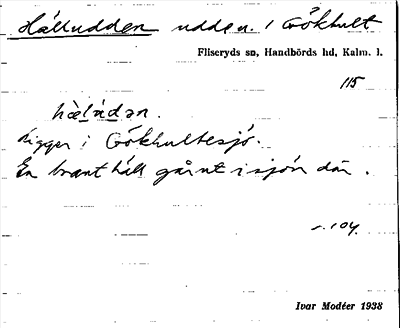 Hälludden udden. i Gökhult
Fliseryds sn, Handbörds hd, Kalm. l.
115
hæ̀lúdən.
Ligger i Gökhultesjö.
En brant häll går ut i sjön där.
s. 104.
Ivar Modéer 1938